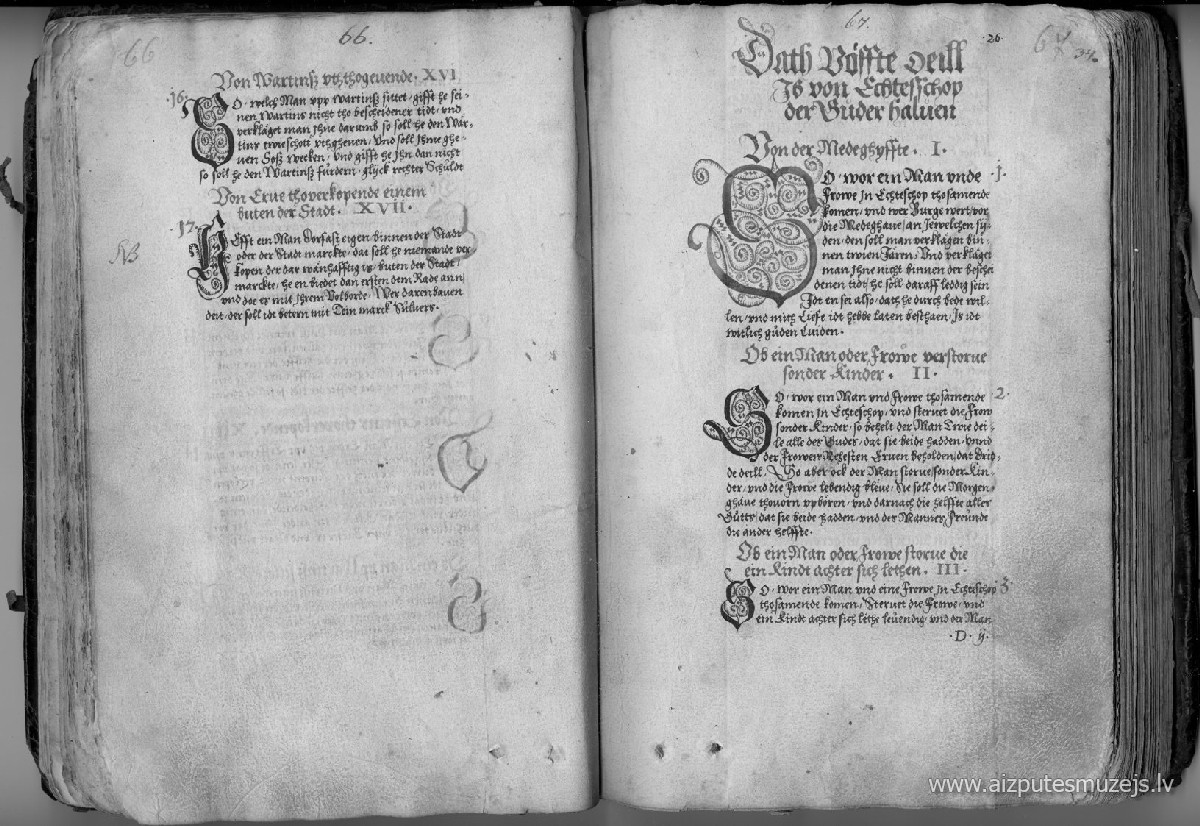 66
66.
Von Martinsz vthzthogeuende. XVI
16.
SO. welch Man vpp Martinsz sittet, gifft he sei-
nen Martins nicht tho bescheidener tidt, vnd
verklaget man Jhne darumb, so soll he den Mar-
tins twieschott vthgheuen, Vnd soll Jhme ghe-
uen Soß wecken, vnd gifft he Jhn dan nicht
so soll he den Martinsz fürdern, glyck rechter Schuldt
Von Erue thoverkopende einem
buten der Stadt. XVII.
17.
NB
HEfft ein Man Torfast eigen binnen der Stadt
oder der Stadt marckte, dat soll he niemande ver
kopen der dar wanhafftig is, buten der Stadt
marckte, he en biedet dan ersten dem Rade ann
vnd doe es mit Jhrem Volborde, Wer daren bauen
deit, der soll idt betern mit Tein marck Silvers.
67.
26.
67
34.
Dath Vöffte Deill
Js von Echtesschop
der Guder haluen
Von der Medeghyffte. I.
1.
SO. wor ein Man vnde
Frowe Jn Echteschop thosamende
komen, vnd wer Burge wert, vor
die Medeghaue, an Jewelcken sy-
den, den soll man verklagen bin-
nen twien Jaren, Vnd verklaget
man Jhne nicht binnen der besche
denen tidt, he soll daraff leddig sein
Jdt en sei also, dath he durch bede wil-
len, vnd mith Liefe idt hebbe laten besthaen, Js idt
witlich guden Luiden.
Ob ein Man oder Frowe verstorue
sonder Kinder. II.
2.
SO. wor ein Man vnd Frowe thosamende
komen Jn Echteschop, vnd steruet die Frow
sonder Kinder, so behelt der Man Twie dei-
le alle der Guder, dat sie beide hadden, vnnd
der Frowen Nehesten Eruen beholden, dat Drid-
de deill, So aber ock der Man storue sonder Kin-
der, vnd die Frowe lebendig bleue, Sie soll die Morgen-
ghaue thouorn vpbören, vnd darnach die helffte aller
Gütts, dat sie beide hadden, vnd des Mannes Freunde
die ander helffte.
Ob ein Man oder Frowe storue die
ein Kindt achter sich lethen. III.
3.
SO. wor ein Man vnd eine Frowe Jn Echteschop
thosamende komen, Steruet die Frowe, vnd
ein Kindt achter sich lethe leuendig, vnd der Man
D. ij.
www.aizputesmuzejs.lv